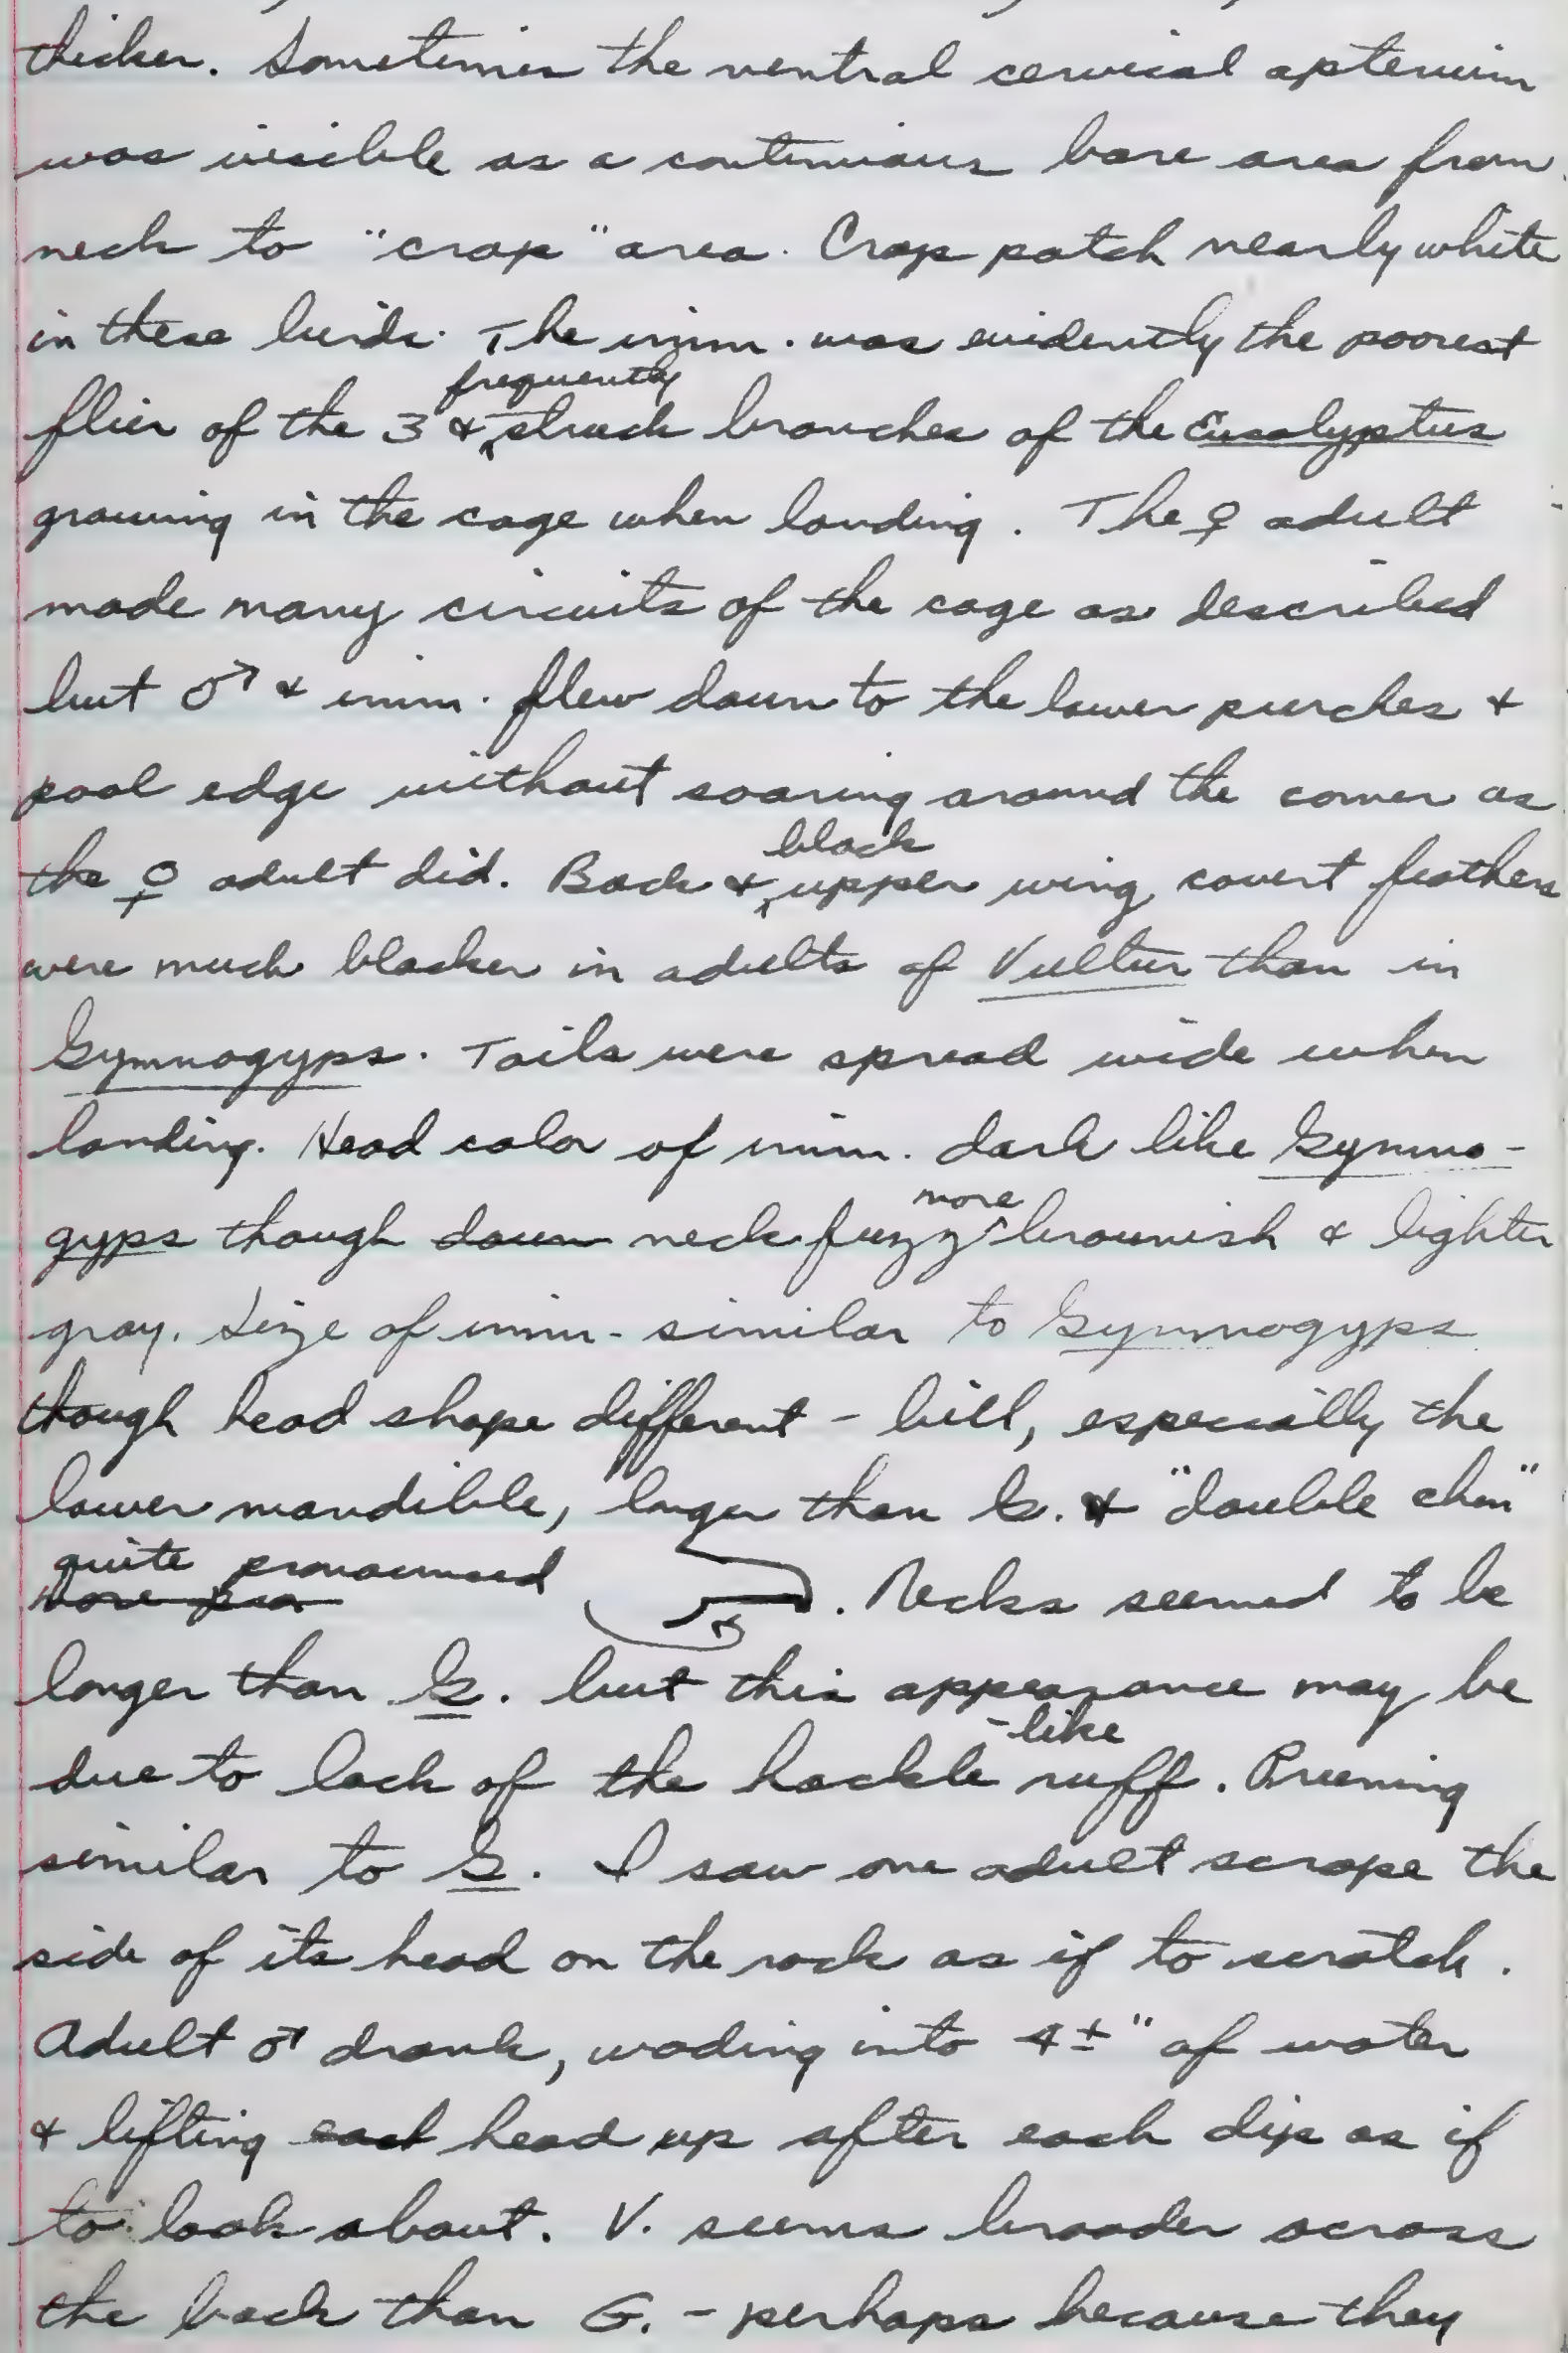 thicker. Sometimes the ventral cervical apterium
was visible as a continuous bare area from
neck to "crop" area. Crop patch nearly white
in these birds. The imm. was evidently the poorest
frequently
flier of the 3 & struck branches of the Eucalyptus
growing in the cage when landing. The ♀ adult
made many circuits of the cage as described
but ♂ & imm. flew down to the lower perches &
pool edge without soaring around the corner as
black
the ♀ adult did. Back & upper wing covert feathers
were much blacker in adults of Vultur than in
Gymnogyps. Tails were spread wide when
landing. Head color of imm. dark like Gymno-
more
gyps though down neck fuzz brownish & lighter
gray. Size of imm. similar to Gymnogyps
though head shape different - bill, especially the
lower mandible, larger than G. & "double chin"
quite pronounced
more
. Necks seemed to be
longer than G. but this appearance may be
-like
due to lack of the hackle ruff. Preening
similar to G. I saw one adult scrape the
side of its head on the rock as if to scratch.
Adult ♂ drank, wading into 4±" of water
& lifting each head up after each dip as if
to look about. V. seems broader across
the back than G. - perhaps because they